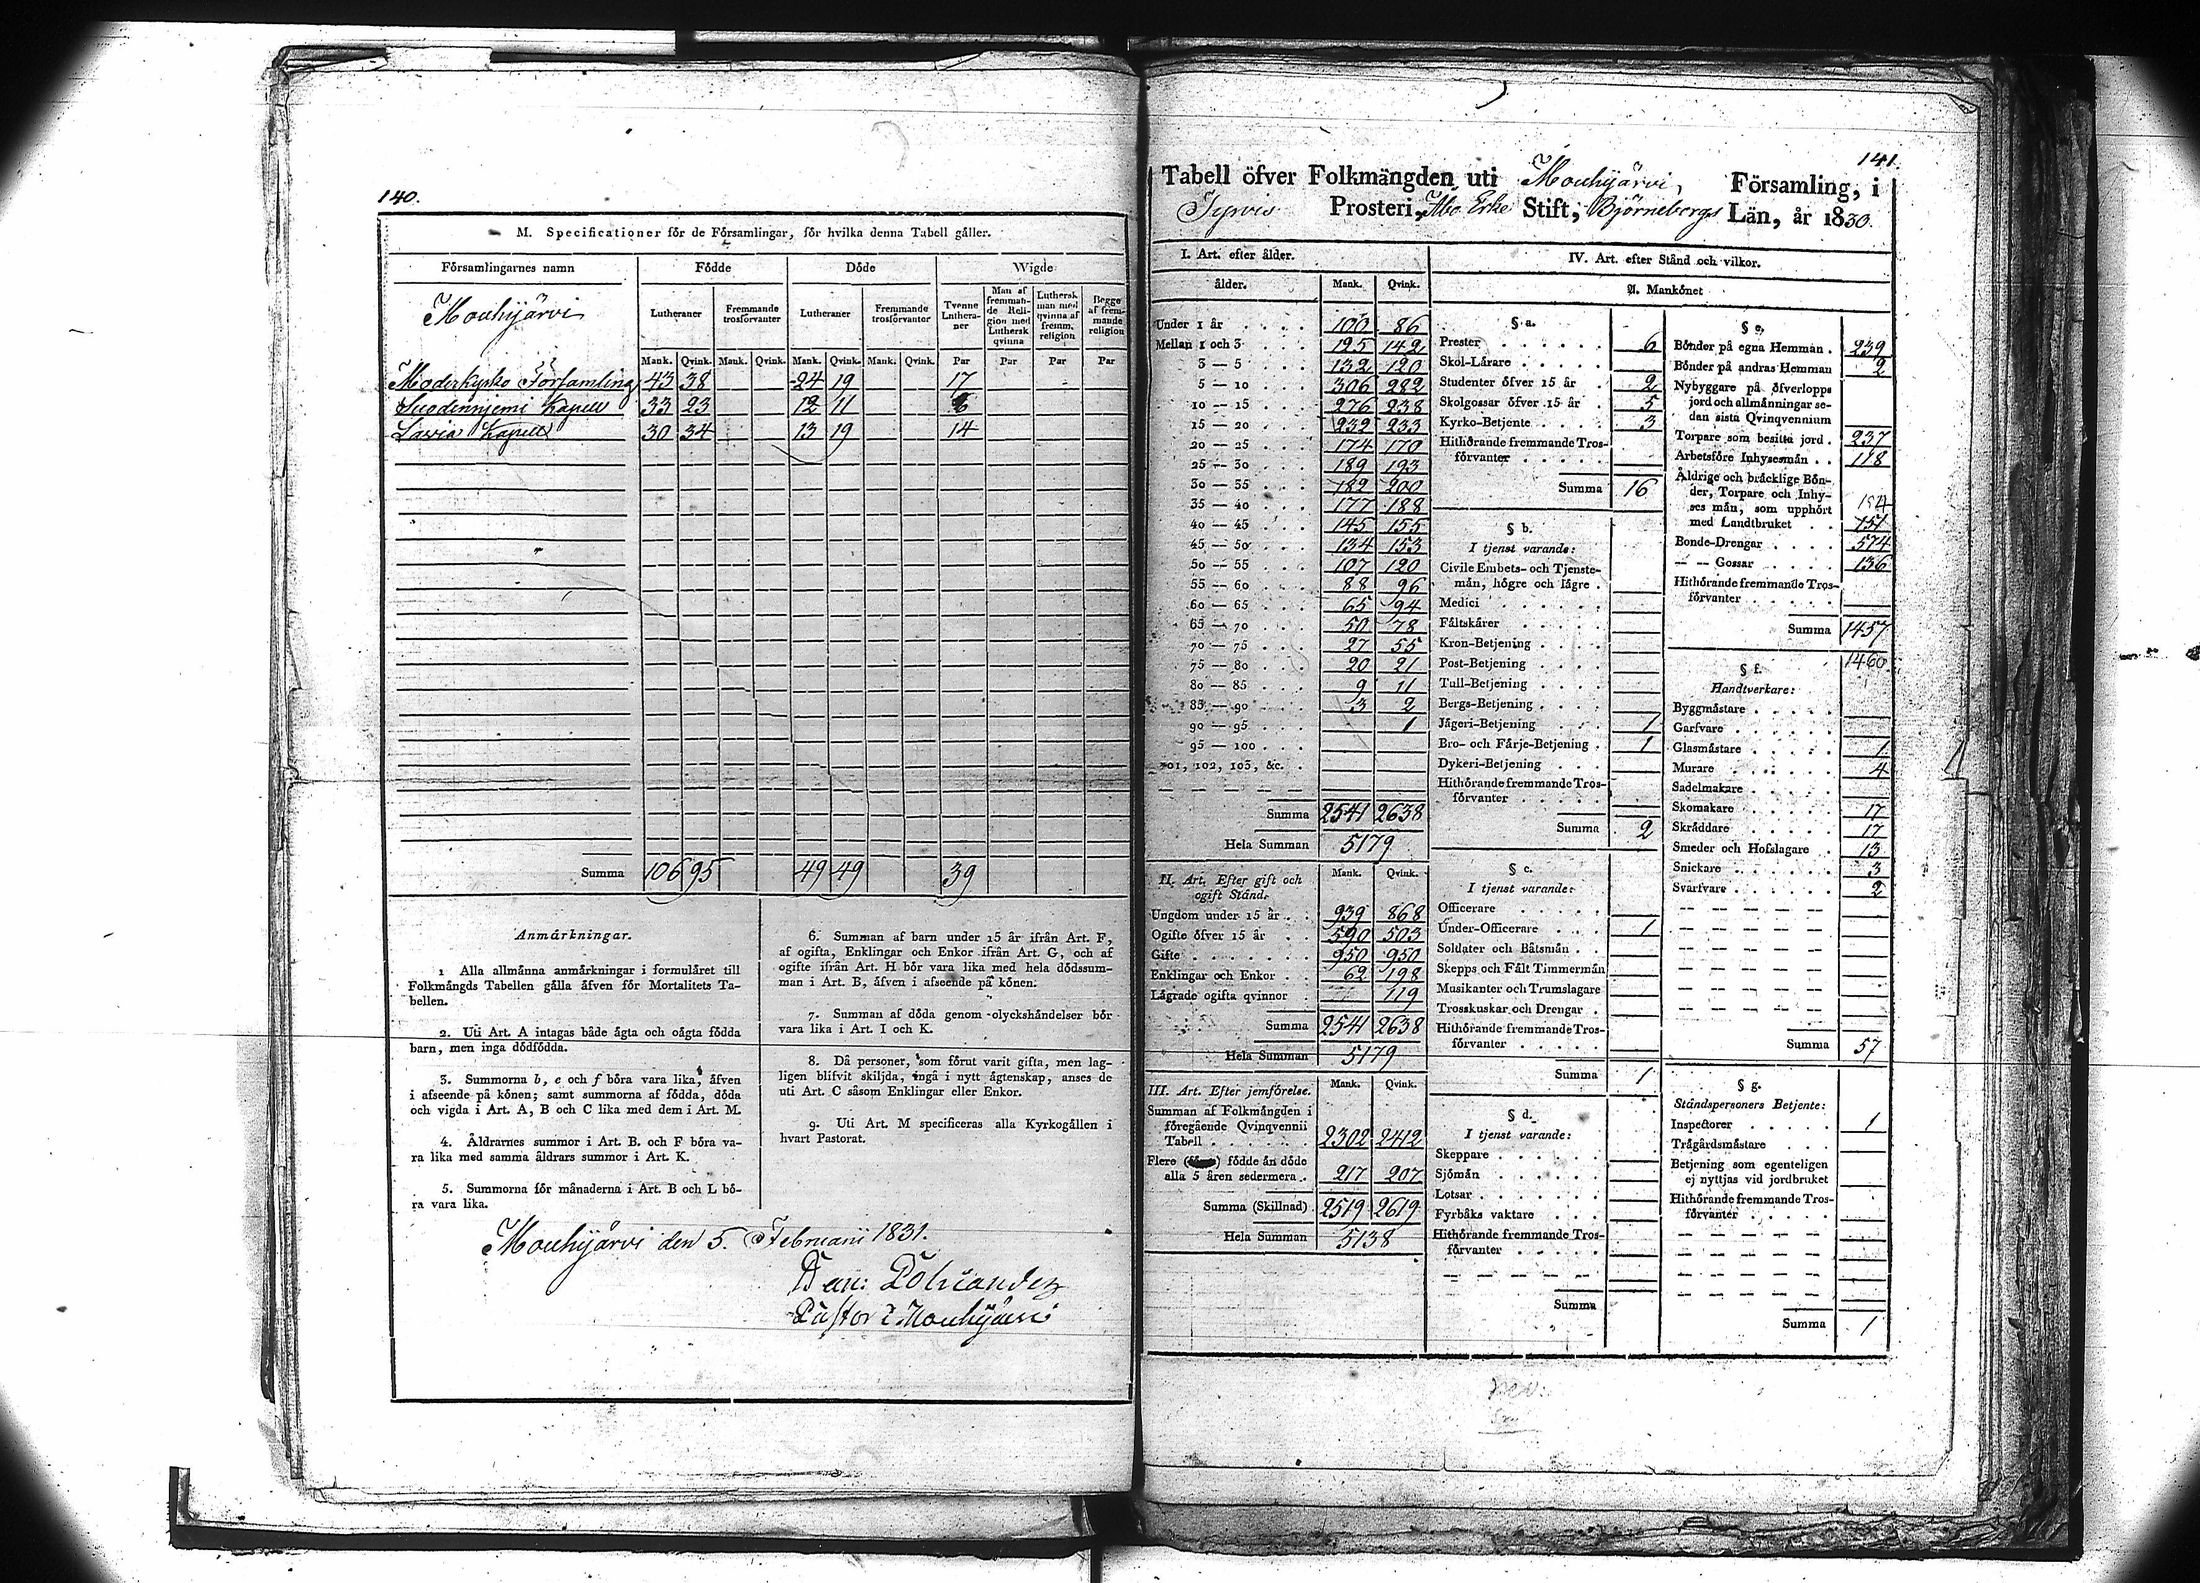 140.
M. Specificationer för de Församlingar, för hvilka denna Tabell gäller.
Församlingarnes namn | Födde | Döde | Wigde
Mouhijärvi | Lutheraner | Fremmande trosförvanter | Lutheraner | Fremmande trosförvanter | Tvenne Lutheraner | Man af fremmande Religion med Luthersk qvinna | Luthersk man med qvinna af fremm. religion | Begge af fremmande religion
Mank. Qvink. Mank. Qvink. Mank. Qvink. Mank. Qvink. Par Par Par Par
Moderkyrko Församling 43 38 24 19 17
Suodennjemi Kapell 33 23 12 11
Lavia Kapell 30 34 13 19 14
Summa 106 95 49 49 39
Anmärkningar.
1 Alla allmänna anmärkningar i formuläret till
Folkmängds Tabellen gälla äfven för Mortalitets Ta-
bellen.
2. Uti Art. A intagas både ägta och oägta födda
barn, men inga dödfödda.
3. Summorna b, e och f böra vara lika, äfven
i afseende på könen; samt summorna af födda, döda
och vigda i Art. A, B och C lika med dem i Art. M.
4. Åldrarnes summor i Art. B. och F böra va-
ra lika med samma åldrars summor i Art. K.
5. Summorna för månaderna i Art. B och L bö-
ra vara lika.
6. Summan af barn under 15 år ifrån Art. F,
af ogifta, Enklingar och Enkor ifrån Art. G, och af
ogifte ifrån Art. H bör vara lika med hela dödssum-
man i Art. B, äfven i afseende på könen.
7. Summan af döda genom olyckshändelser bör
vara lika i Art. I och K.
8. Då personer, som förut varit gifta, men lag-
ligen blifvit skiljda, ingå i nytt ägtenskap, anses de
uti Art. C såsom Enklingar eller Enkor.
9. Uti Art. M specificeras alla Kyrkogällen i
hvart Pastorat.
Mouhijärvi den 5. Februarii 1831.
Dan: Polviander
Pastor i Mouhijärvi
141.
Tabell öfver Folkmängden uti Mouhijärvi, Församling, i
Tyrvis Prosteri, Åbo Erke Stift, Björneborgs Län, år 1830.
I. Art. efter ålder.
ålder. Mank. Qvink.
Under 1 år 100 86
Mellan 1 och 3 195 142
3 — 5 132 120
5 — 10 306 282
10 — 15 276 238
15 — 20 232 233
20 — 25 174 170
25 — 30 189 193
30 — 35 182 200
35 — 40 177 188
40 — 45 145 155
45 — 50 134 153
50 — 55 107 120
55 — 60 88 96
60 — 65 65 94
65 — 70 50 78
70 — 75 27 55
75 — 80 20 21
80 — 85 9 11
85 — 90 3 2
90 — 95 1
95 — 100
101, 102, 103, &c.
Summa 2541 2638
Hela Summan 5179
II. Art. Efter gift och
ogift Stånd. Mank. Qvink.
Ungdom under 15 år 939 868
Ogifte öfver 15 år 590 503
Gifte 950 950
Enklingar och Enkor 62 198
Lägrade ogifta qvinnor 119
Summa 2541 2638
Hela Summan 5179
III. Art. Efter jemförelse. Mank. Qvink.
Summan af Folkmängden i
föregående Qvinqvennii
Tabell 2302 2412
Flere födde än döde
alla 5 åren sedermera 217 207
Summa (Skillnad) 2519 2619
Hela Summan 5138
IV. Art. efter Stånd och vilkor.
A. Mankönet
§ a.
Prester 6
Skol-Lärare
Studenter öfver 15 år 2
Skolgossar öfver 15 år 5
Kyrko-Betjente 3
Hithörande fremmande Tros-
förvanter
Summa 16
§ b.
I tjenst varande:
Civile Embets- och Tjenste-
män, högre och lägre
Medici
Fältskärer
Kron-Betjening
Post-Betjening
Tull-Betjening
Bergs-Betjening
Jägeri-Betjening 1
Bro- och Färje-Betjening 1
Dykeri-Betjening
Hithörande fremmande Tros-
förvanter
Summa 2
§ c.
I tjenst varande:
Officerare
Under-Officerare 1
Soldater och Båtsmän
Skepps och Fält Timmermän
Musikanter och Trumslagare
Trosskuskar och Drengar
Hithörande fremmande Tros-
förvanter
Summa 1
§ d.
I tjenst varande:
Skeppare
Sjömän
Lotsar
Fyrbåks vaktare
Hithörande fremmande Tros-
förvanter
Summa
§ e.
Bönder på egna Hemman 239
Bönder på andras Hemman 2
Nybyggare på öfverlopps
jord och allmänningar se-
dan sista Qvinqvennium
Torpare som besitta jord 237
Arbetsföre Inhysesmän 118
Åldrige och bräcklige Bön-
der, Torpare och Inhy-
ses män, som upphört 154
med Landtbruket 151
Bonde-Drengar 574
— — Gossar 136
Hithörande fremmande Tros-
förvanter
Summa 1457
1460
§ f.
Handtverkare:
Byggmästare
Garfvare
Glasmästare 1
Murare 4
Sadelmakare
Skomakare 17
Skräddare 17
Smeder och Hofslagare 13
Snickare 3
Svarfvare 2
Summa 57
§ g.
Ståndspersoners Betjente:
Inspector 1
Trägårdsmästare
Betjening som egenteligen
ej nyttjas vid jordbruket
Hithörande fremmande Tros-
förvanter
Summa 1